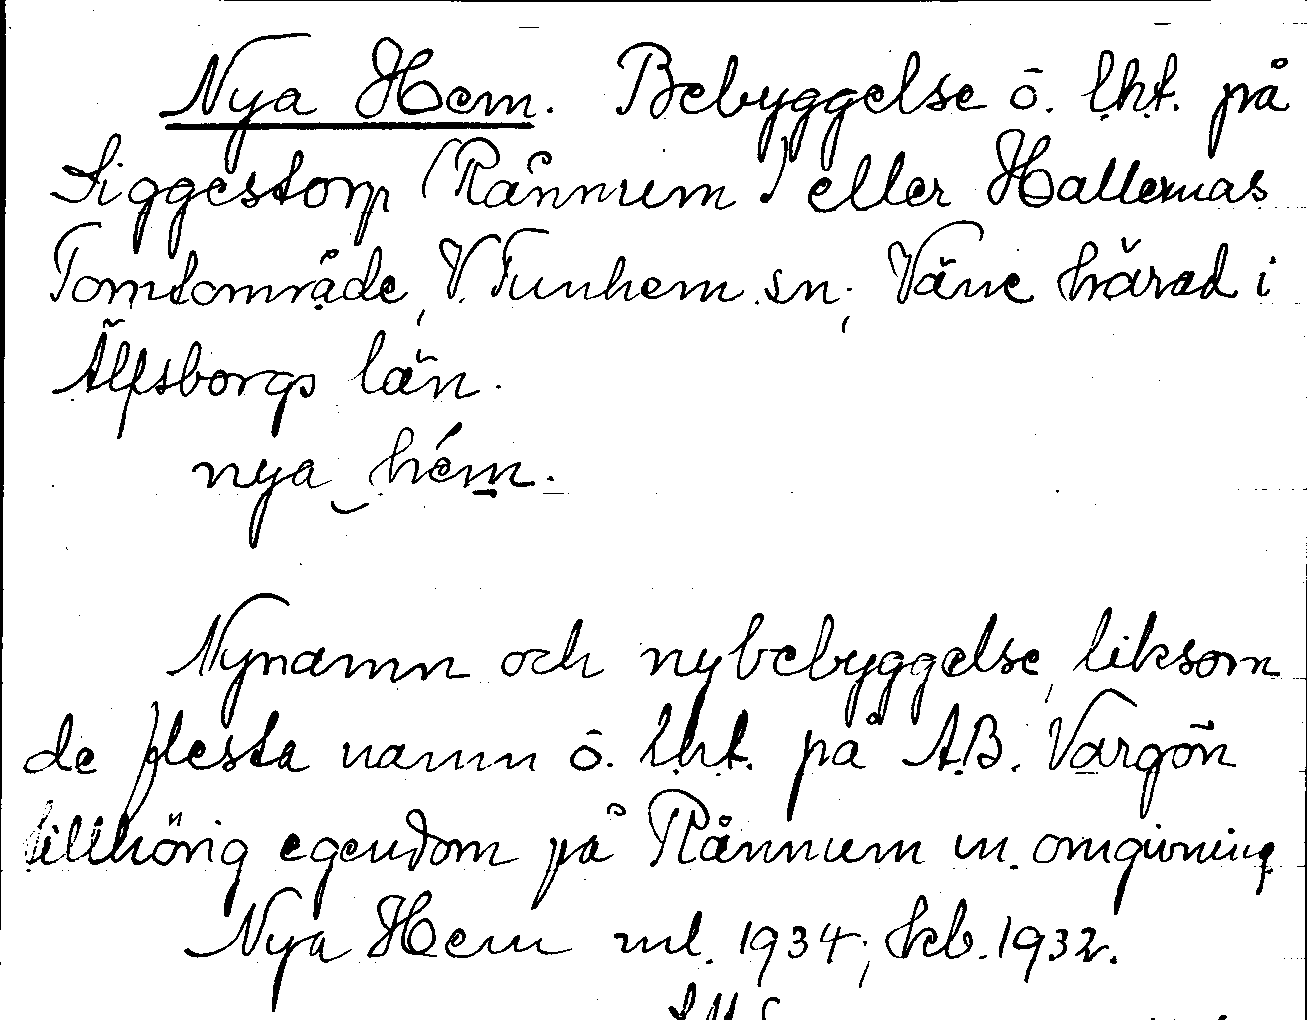 Nya Hem. Bebyggelse ö. lht. på
Siggestorp (Rånnum) eller Hallernas
Tomtområde, V. Tunhem sn; Väne härad i
Älfsborgs län.
nya hém.
Nynamn och nybebyggelse, liksom
de flesta namn ö. lht. på A.B. Vargön
tillhörig egendom på Rånnum m. omgivning
Nya Hem ml. 1934; kb. 1932.